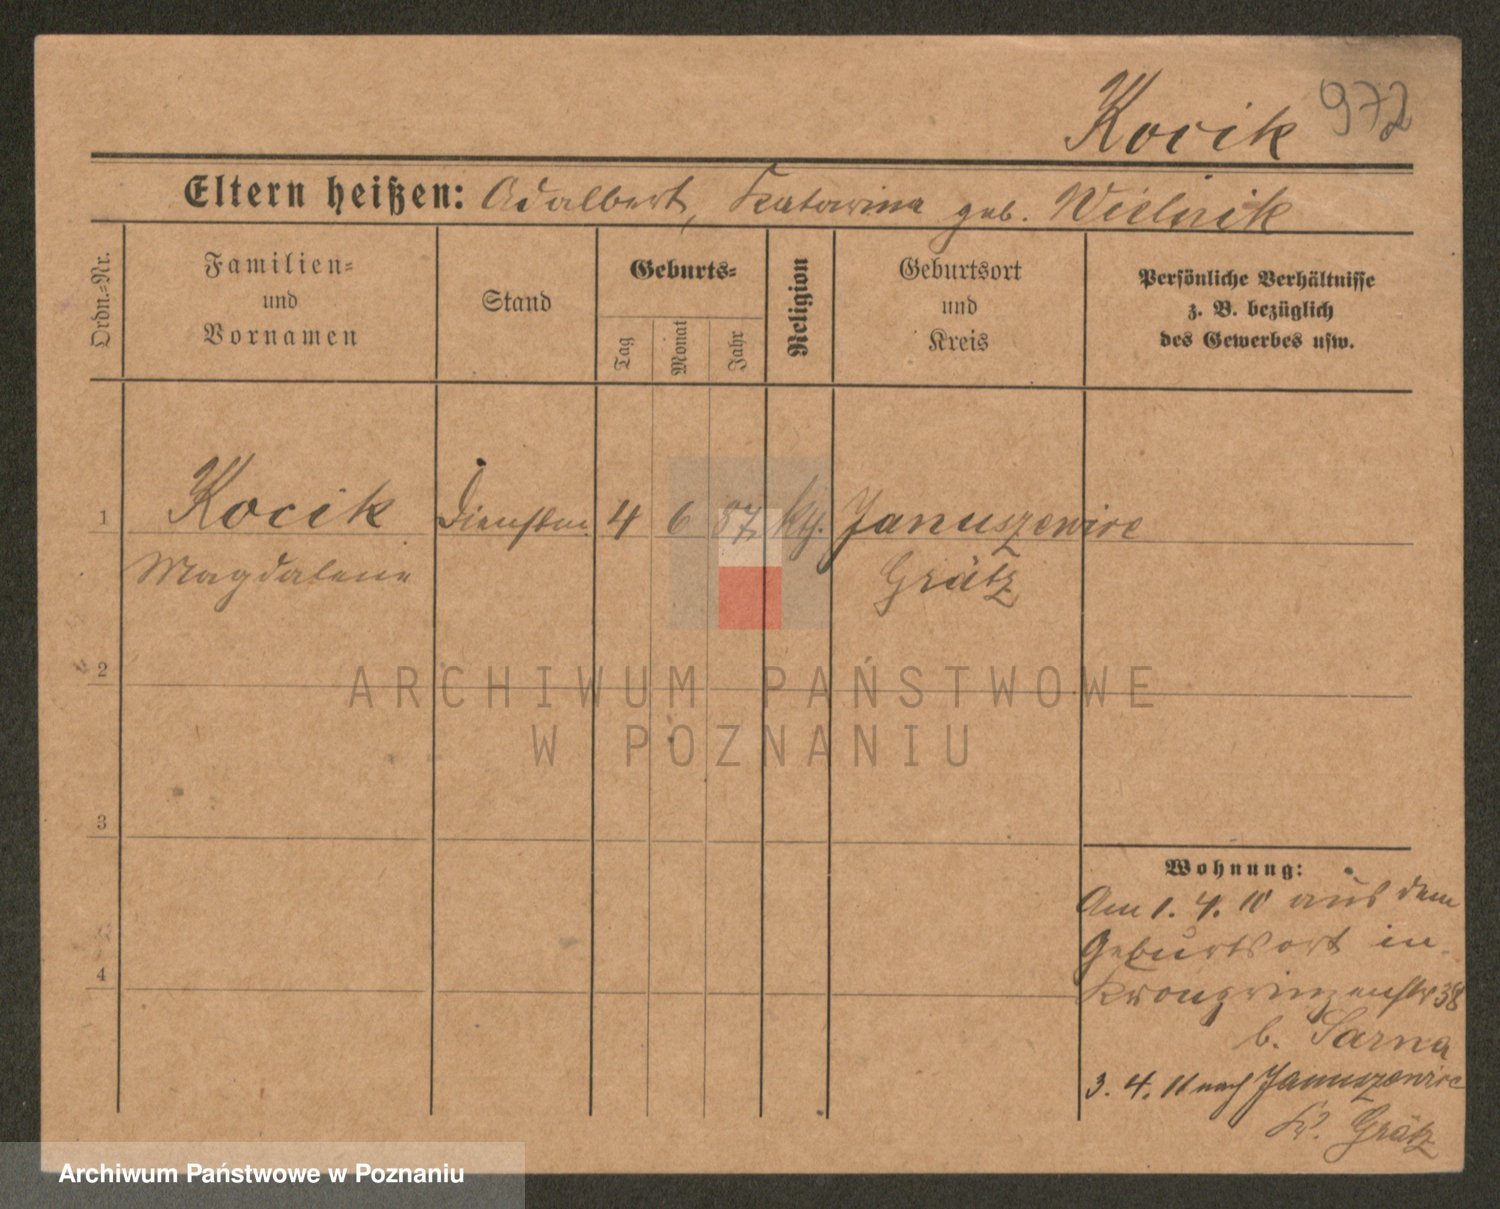 Kocik 972
Eltern heißen: Adalbert, Katarina geb. Wielnik
Ordn.-Nr.
Familien-
und
Vornamen
Stand
Geburts-
Tag
Monat
Jahr
Religion
Geburtsort
und
Kreis
Persönliche Verhältnisse
z. B. bezüglich
des Gewerbes usw.
1 Kocik 4 6 87 kth. Januszewice
Magdalena Grätz
2
ARCHIWUM PAŃSTWOWE
W POZNANIU
3
Wohnung:
Am 1. 4. 10 aus dem
4 Geburtsort in
Kronprinzenstr 38
b. Sarna
3. 4. 11 nach Januszewice
Kr. Grätz
Archiwum Państwowe w Poznaniu